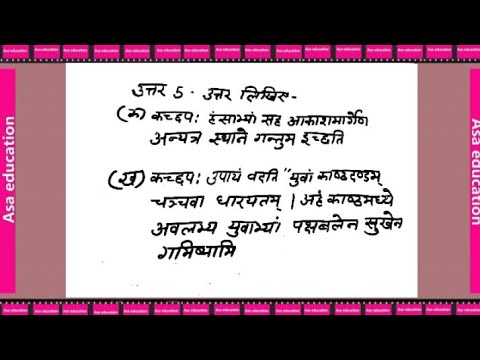 Asa education
उत्तर 5. उत्तर लिखिए -
(क) कच्छपः हंसाभ्यां सह आकाशमार्गेण
अन्यत्र स्थाने गन्तुम इच्छति
(ख) कच्छपः उपायं वदति "युवां काष्ठदण्डम्
चञ्चवा धारयतम् | अहं काष्ठमध्ये
अवलम्ब्य युवाभ्यां पक्षबलेन सुखेन
गमिष्यामि
Asa education